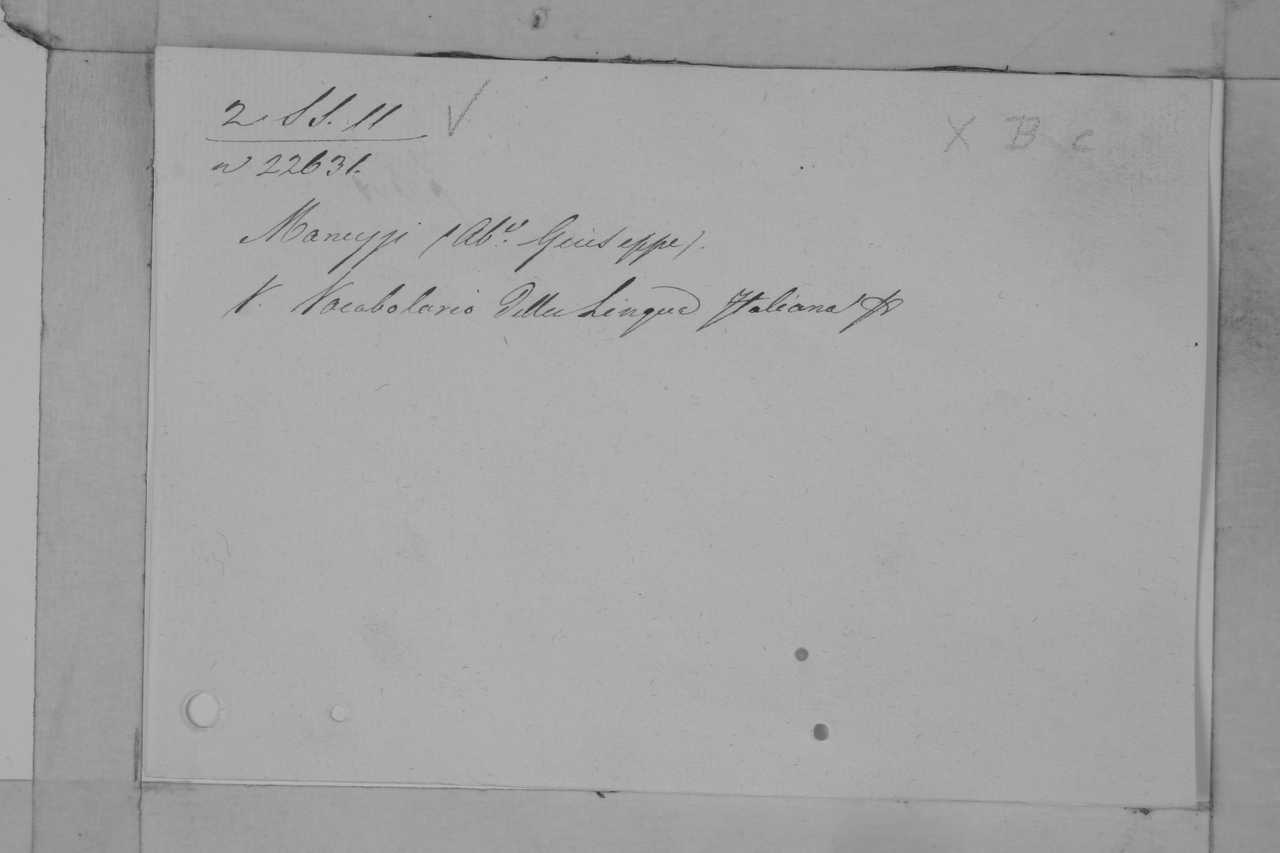 2 SS. 11 V
n 22631.
X B c
Manuzzi (Ab.e Giuseppe).
V. Vocabolario della Lingua Italiana